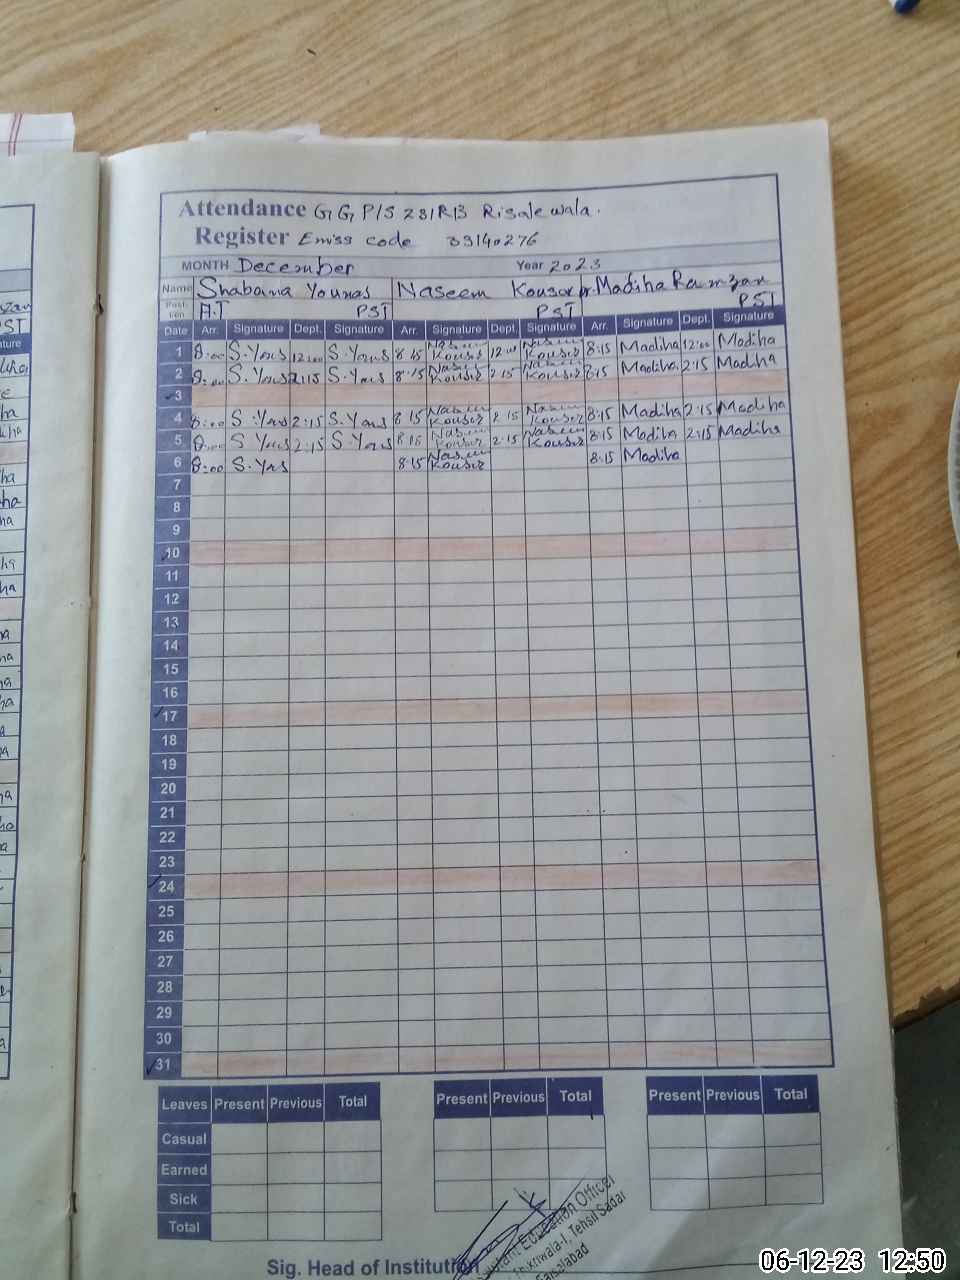 Attendance G,G,P/S 231RB Risalewala.
Register Emiss code 33140276
MONTH December Year 2023
Name Shabana Younas Naseem Kousar Madiha Ramzan
A.T PST PST PST
Date Arr. Signature Dept. Signature Arr. Signature Dept. Signature Arr. Signature Dept. Signature
1 8:00 S.Yous 12:00 S.Yous 8:15 Nasim Kouser 12:00 Nasim Kouser 8:15 Madiha 12:00 Madiha
2 8:00 S.Yous 2:15 S.Yous 8:15 Nasim Kouser 2:15 Nasim Kouser 8:15 Madiha 2:15 Madiha
3
4 8:00 S.Yous 2:15 S.Yous 8:15 Nasim Kouser 2:15 Nasim Kouser 8:15 Madiha 2:15 Madiha
5 8:00 S.Yous 2:15 S.Yous 8:15 Nasim Kouser 2:15 Nasim Kouser 8:15 Madiha 2:15 Madiha
6 8:00 S.Yous 8:15 Nasim Kouser 8:15 Madiha
7
8
9
10
11
12
13
14
15
16
17
18
19
20
21
22
23
24
25
26
27
28
29
30
31
Leaves Present Previous Total Present Previous Total Present Previous Total
Casual
Earned
Sick
Total
Sig. Head of Institution
Education Officer
Tehsil Sadar
Faisalabad
06-12-23 12:50